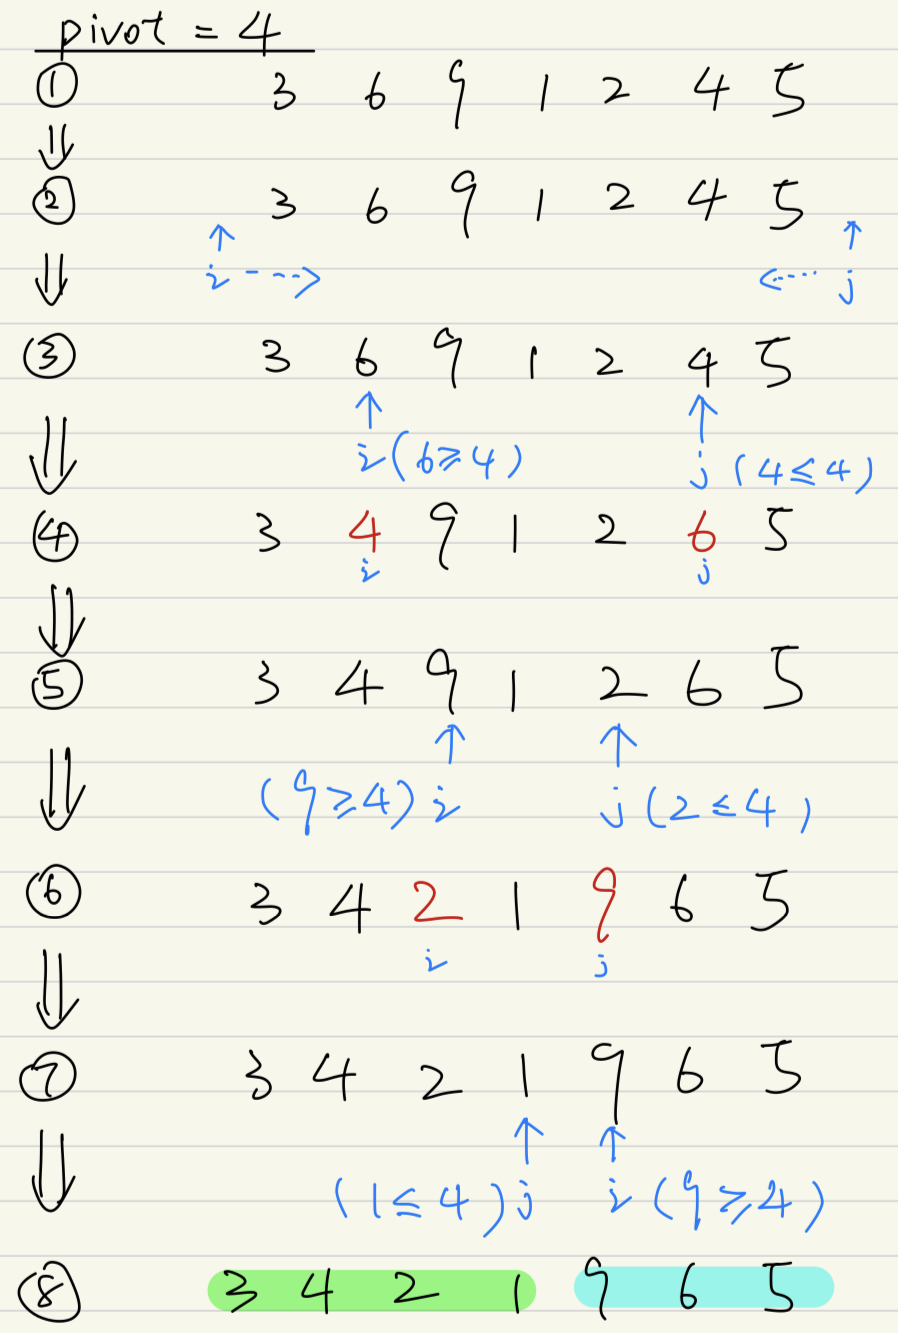 pivot = 4
① 3 6 9 1 2 4 5
⇓
② 3 6 9 1 2 4 5
↑ ↑
i ---> <---- j
⇓
③ 3 6 9 1 2 4 5
↑ ↑
⇓ i (6⩾4) j (4≤4)
④ 3 4 9 1 2 6 5
i j
⇓
⑤ 3 4 9 1 2 6 5
↑ ↑
⇓ (9≥4) i j (2≤4)
⑥ 3 4 2 1 9 6 5
i j
⇓
⑦ 3 4 2 1 9 6 5
↑ ↑
⇓ (1≤4) j i (9⩾4)
⑧ 3 4 2 1 9 6 5